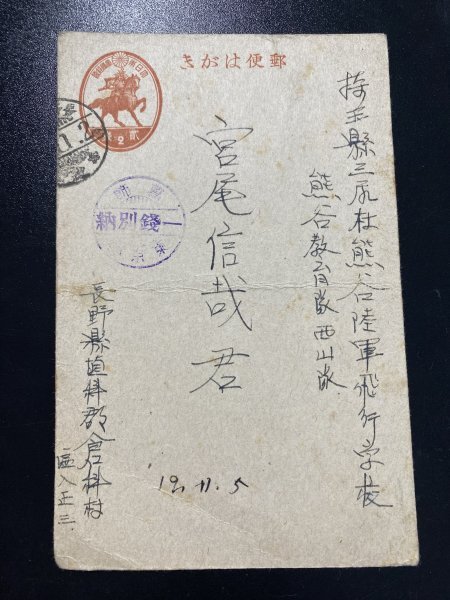 郵便はがき
埼玉縣三尻村熊谷陸軍飛行学校
熊谷教育隊西山隊
宮尾信哉君
一錢別納
長野縣埴科郡倉科村
區八正三
19.11.5
貳
2